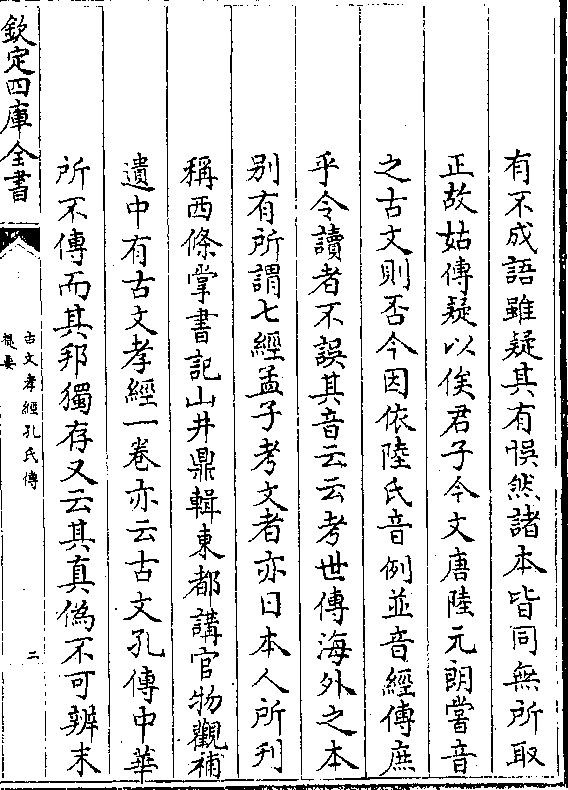 有不成語雖疑其有悞然諸本皆同無所取
正故姑傳疑以俟君子今文唐陸元朗嘗音
之古文則否今因依陸氏音例並音經傳庶
乎令讀者不誤其音云云考世傳海外之本
别有所謂七經孟子考文者亦日本人所刋
稱西條掌書記山井鼎輯東都講官物觀補
遺中有古文孝經一卷亦云古文孔傳中華
所不傳而其邦獨存又云其真偽不可辨末
欽定四庫全書
古文孝經孔氏傳
提要
二